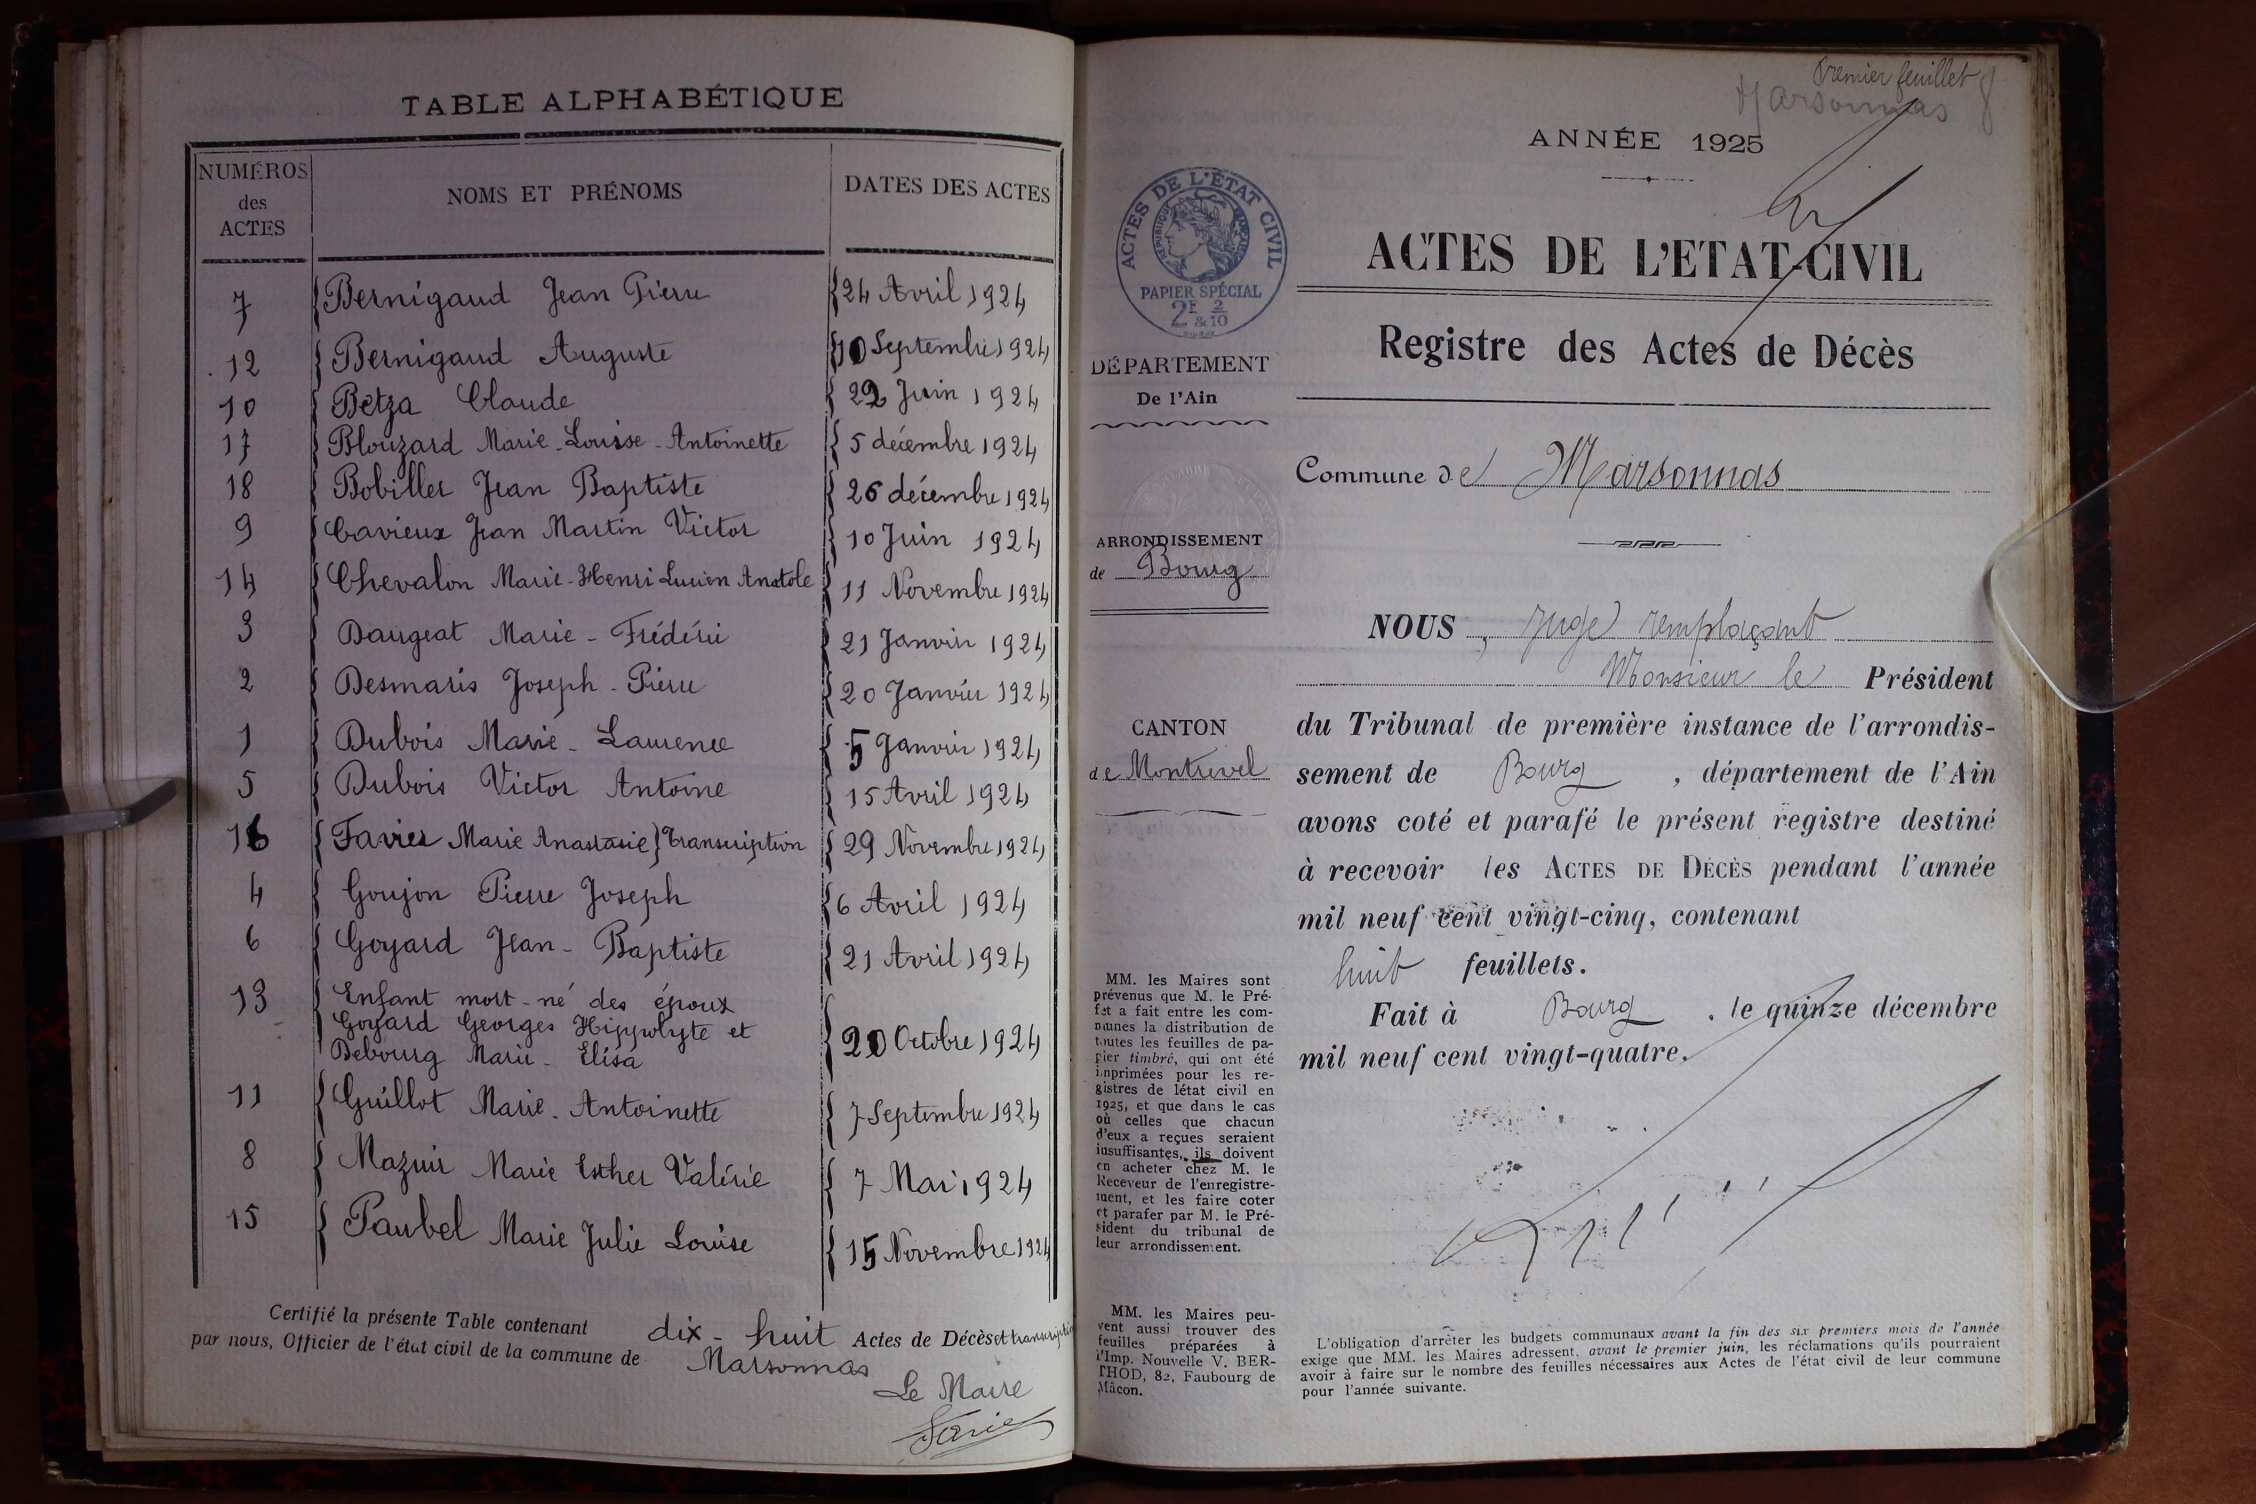 TABLE ALPHABÉTIQUE
NUMÉROS
des
ACTES
NOMS ET PRÉNOMS
DATES DES ACTES
7 Bernigaud Jean Pierre 24 Avril 1924
12 Bernigaud Auguste 10 Septembre 1924
10 Betza Claude 22 Juin 1924
17 Blouzard Marie-Louise-Antoinette 5 décembre 1924
18 Bobiller Jean Baptiste 26 décembre 1924
9 Cavieux Jean Martin Victor 10 Juin 1924
14 Chevalon Marie-Henri Lucien Anatole 11 Novembre 1924
3 Daugeat Marie-Frédéric 21 Janvier 1924
2 Desmaris Joseph-Pierre 20 Janvier 1924
1 Dubois Marie-Laurence 5 Janvier 1924
5 Dubois Victor Antoine 15 Avril 1924
16 Favier Marie Anastasie } Transcription 29 Novembre 1924
4 Goujon Pierre Joseph 6 Avril 1924
6 Goyard Jean-Baptiste 21 Avril 1924
13 Enfant mort-né des époux
Goyard Georges Hippolyte et
Debourg Marie-Elisa 20 Octobre 1924
11 Guillot Marie-Antoinette 7 Septembre 1924
8 Mazuir Marie Esther Valérie 7 Mai 1924
15 Paubel Marie Julie Louise 15 Novembre 1924
Certifié la présente Table contenant dix-huit Actes de Décès et transcription
par nous, Officier de l'état civil de la commune de Marsonnas
Le Maire
Premier feuillet
Marsonnas 8
ANNÉE 1925
ACTES DE L'ÉTAT CIVIL
RÉPUBLIQUE FRANÇAISE
PAPIER SPÉCIAL
2F & 2/10
ACTES DE L'ETAT-CIVIL
Registre des Actes de Décès
DÉPARTEMENT
De l'Ain
Commune de Marsonnas
ARRONDISSEMENT
de Bourg
CANTON
de Montrevel
NOUS, Juge remplaçant
Monsieur le Président
du Tribunal de première instance de l'arrondis-
sement de Bourg, département de l'Ain
avons coté et parafé le présent registre destiné
à recevoir les ACTES DE DÉCÈS pendant l'année
mil neuf cent vingt-cinq, contenant
huit feuillets.
Fait à Bourg, le quinze décembre
mil neuf cent vingt-quatre.
MM. les Maires sont
prévenus que M. le Pré-
fet a fait entre les com-
munes la distribution de
toutes les feuilles de pa-
pier timbré, qui ont été
imprimées pour les re-
gistres de létat civil en
1925, et que dans le cas
où celles que chacun
d'eux a reçues seraient
insuffisantes, ils doivent
en acheter chez M. le
Receveur de l'enregistre-
ment, et les faire coter
et parafer par M. le Pré-
sident du tribunal de
leur arrondissement.
MM. les Maires peu-
vent aussi trouver des
feuilles préparées à
l'Imp. Nouvelle V. BER-
THOD, 82, Faubourg de
Mâcon.
L'obligation d'arrêter les budgets communaux avant la fin des six premiers mois de l'année
exige que MM. les Maires adressent, avant le premier juin, les réclamations qu'ils pourraient
avoir à faire sur le nombre des feuilles nécessaires aux Actes de l'état civil de leur commune
pour l'année suivante.